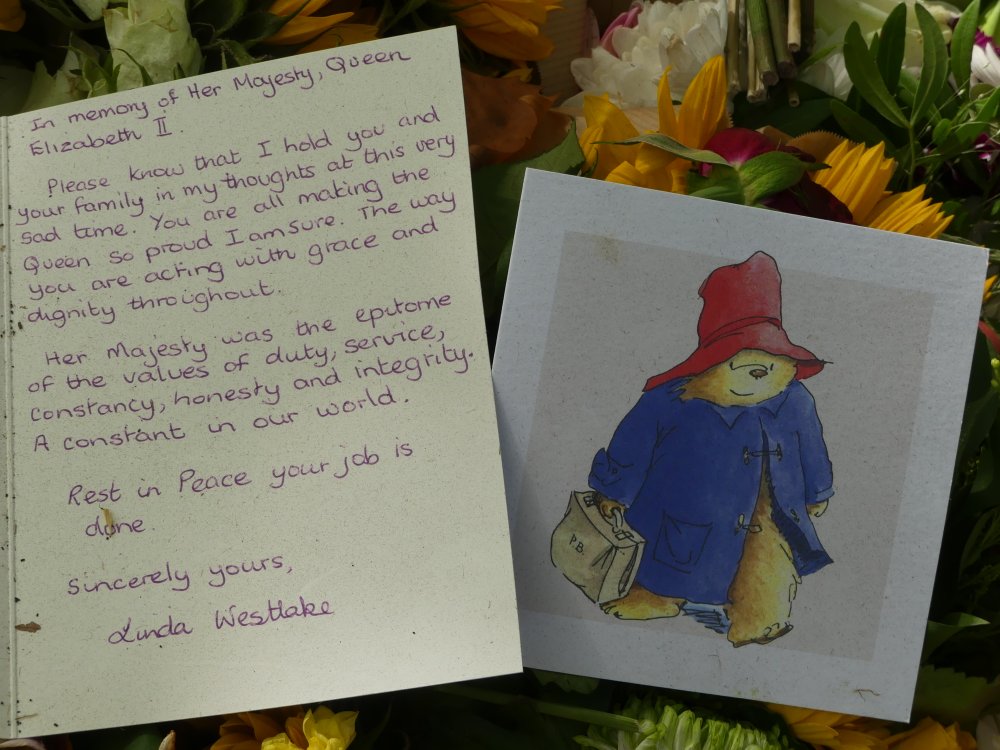 In memory of Her Majesty, Queen
Elizabeth II.
Please know that I hold you and
your family in my thoughts at this very
sad time. You are all making the
Queen so proud I am sure. The way
you are acting with grace and
dignity throughout.
Her Majesty was the epitome
of the values of duty, service,
constancy, honesty and integrity.
A constant in our world.
Rest in Peace your job is
done.
Sincerely yours,
Linda Westlake
P.B.